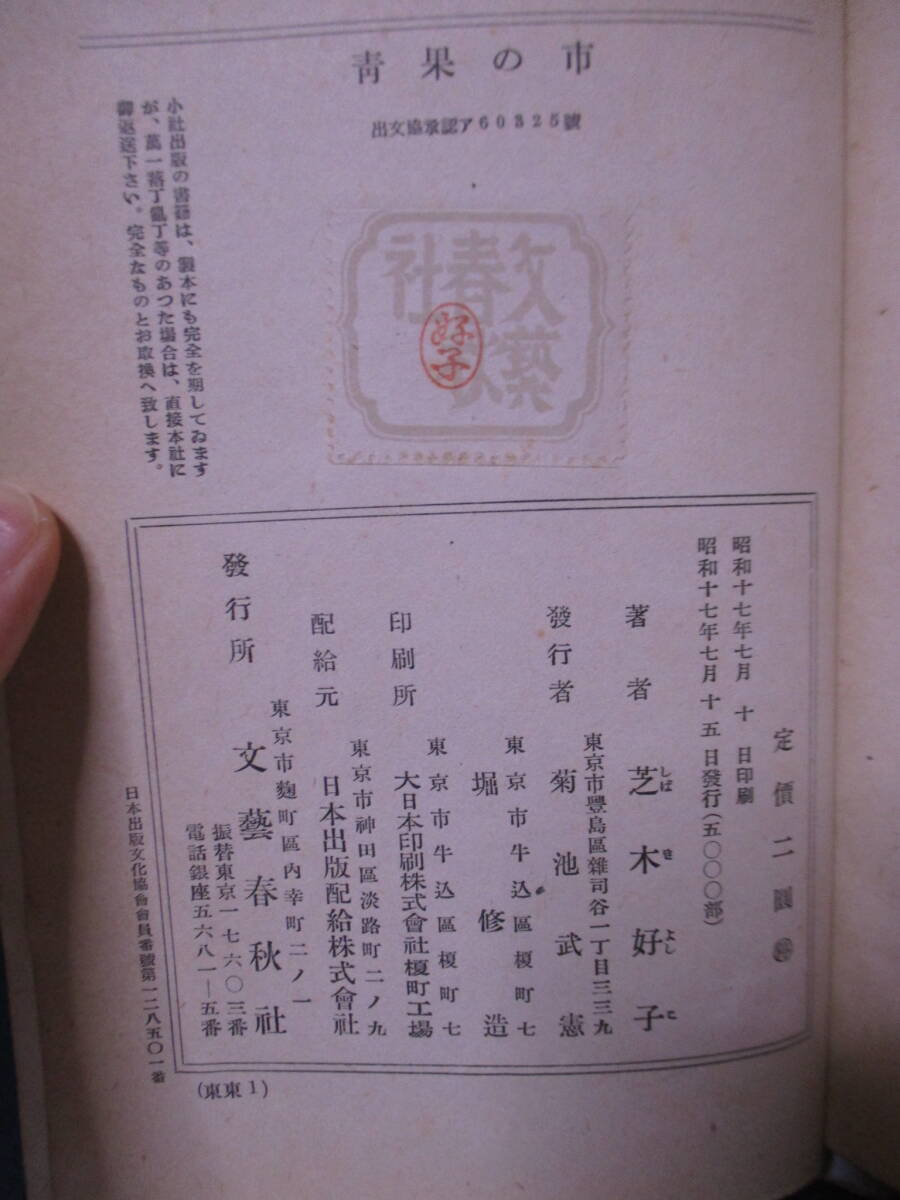 靑果の市
出文協承認ア60325號
小社出版の書籍は、製本にも完全を期してゐます
が、萬一落丁亂丁等のあつた場合は、直接本社に
御返送下さい。完全なものとお取換へ致します。
文藝
春秋
社
好子
定價二圓
昭和十七年七月 十 日印刷
昭和十七年七月十五日發行(五〇〇〇部)
著者 芝木好子
しば き よし こ
東京市豐島區雜司谷一丁目三三九
發行者 菊池武憲
東京市牛込區榎町七
堀修造
東京市牛込區榎町七
印刷所 大日本印刷株式會社榎町工場
東京市神田區淡路町二ノ九
配給元 日本出版配給株式會社
東京市麴町區內幸町二ノ一
發行所 文藝春秋社
振替東京一七六〇三番
電話銀座五六八一—五番
日本出版文化協會會員番號第一二八五〇一番
(東東1)